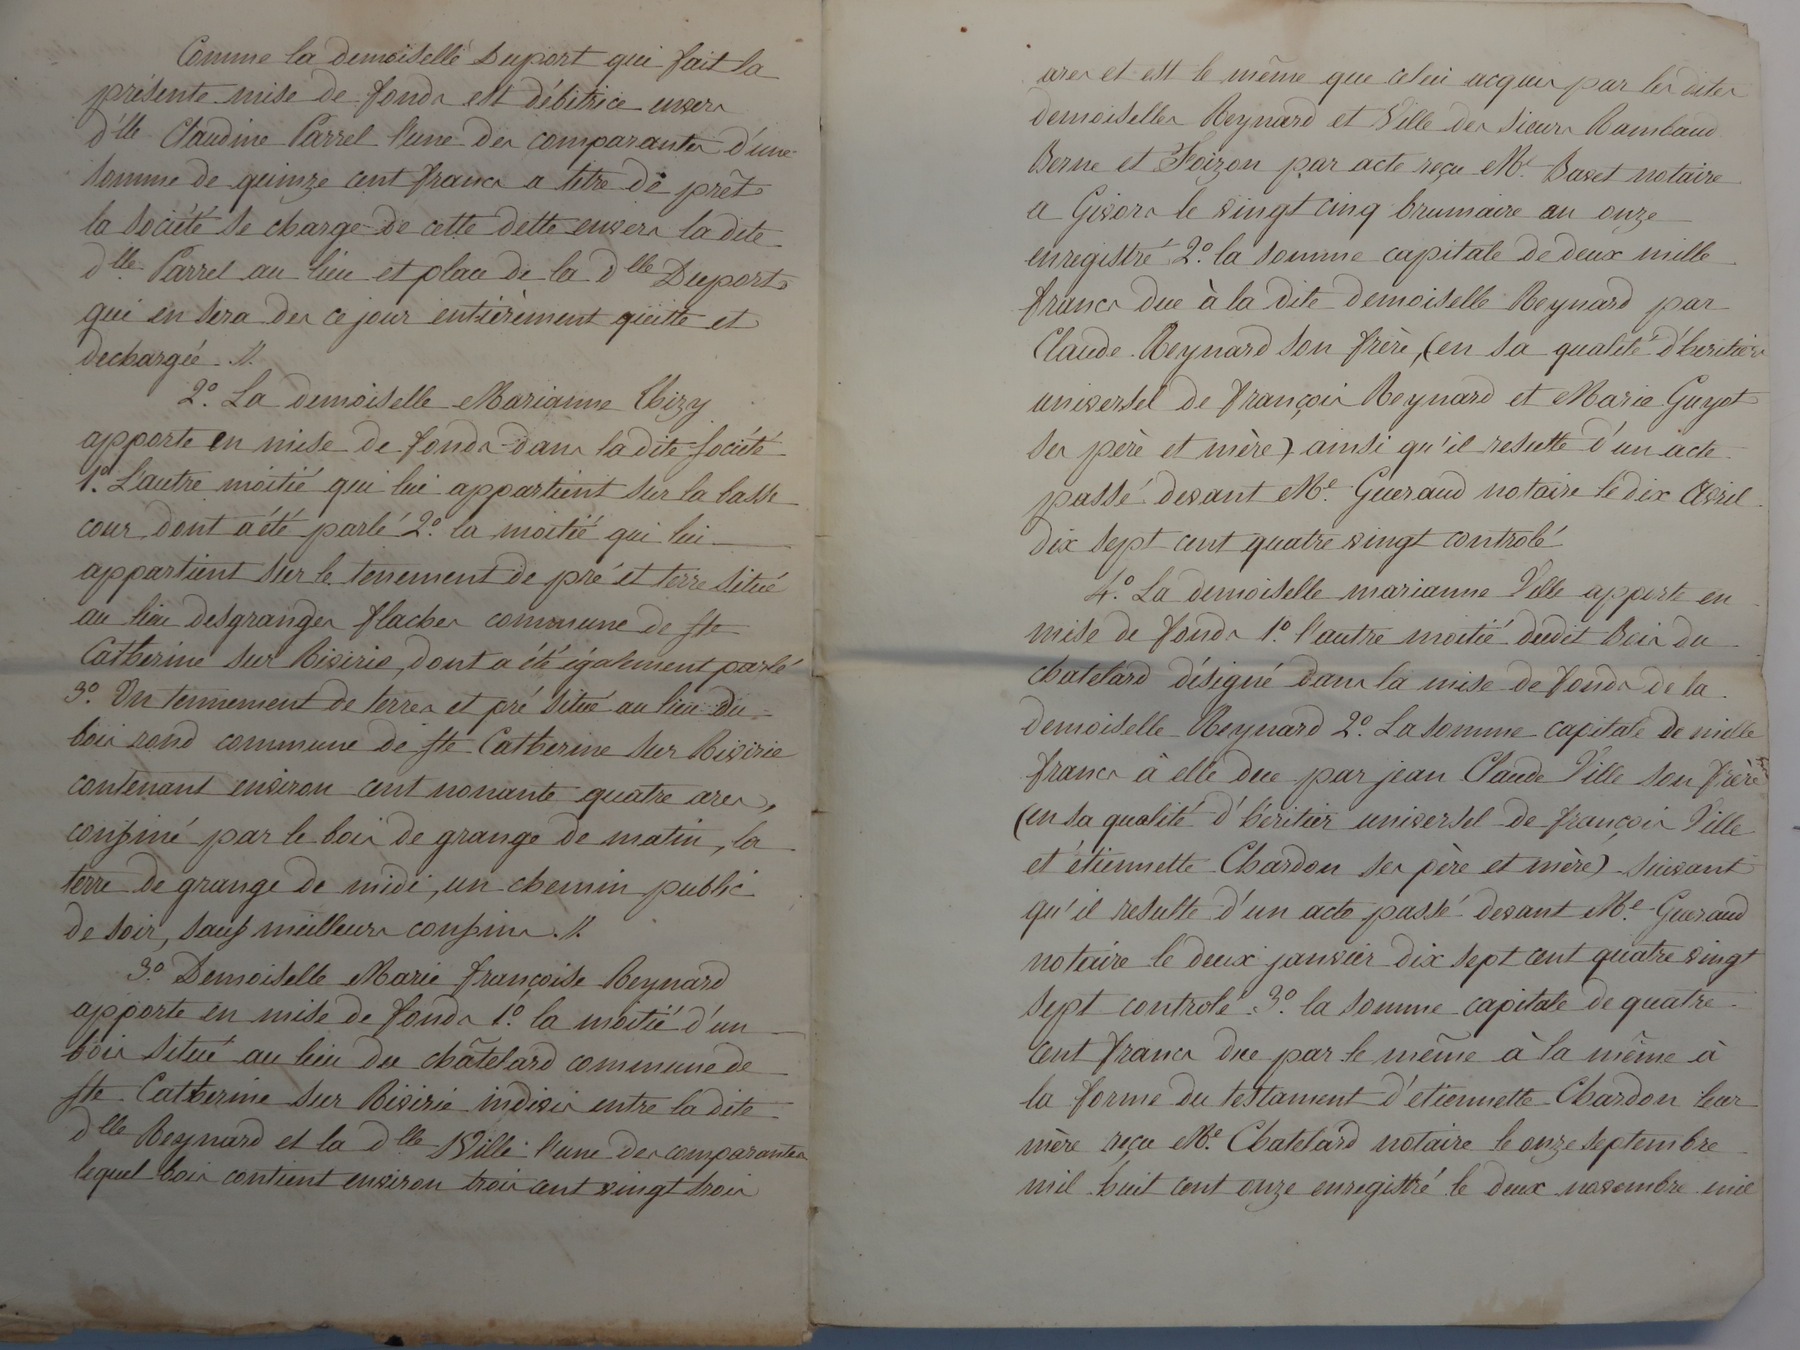 Comme la demoiselle Duport qui fait la
présente mise de fonds est débitrice envers
d'lle Claudine Parrel l'une des comparantes d'une
somme de quinze cent francs a titre de prêt
la société se charge de cette dette envers la dite
dlle Parrel au lieu et place de la dlle Duport
qui en sera des ce jour entièrement quitte et
dechargée .//.
2º. La demoiselle Marianne Thizy
apporte en mise de fonds dans la dite société
1º. L'autre moitié qui lui appartient sur la basse
cour dont a été parlé 2º. la moitié qui lui
appartient sur le tenement de pré et terre situé
au lieu desgranges flaches commune de ste
Catherine sur Rivirie, dont a été également parlé
3º. Un tennement de terres et pré situé au lieu du
bois rond commune de ste Catherine sur Rivirie
contenant environ cent nonante quatre ares,
confiné par le bois de grange de matin, la
terre de grange de midi, un chemin public
de soir, sauf meilleurs confins .//.
3º. Demoiselle Marie françoise Reynard
apporte en mise de fonds 1º. la moitié d'un
bois situé au lieu du châtelard commune de
ste Catherine sur Rivirie indivis entre la dite
dlle Reynard et la dlle Ville l'une des comparantes
lequel bois contient environ trois cent vingt trois
ares et est le même que celui acquis par les dites
demoiselles Reynard et Ville des sieurs Rambaud
Berne et Foizon par acte reçu Me. Bavet notaire
a Givors le vingt cinq brumaire an onze
enregistré 2º. la somme capitale de deux mille
francs due à la dite demoiselle Reynard par
Claude Reynard son frère, (en sa qualité d'héritier
universel de françois Reynard et Marie Guyot
ses père et mère) ainsi qu'il resulte d'un acte
passé devant Me. Gueraud notaire le dix Avril
dix sept cent quatre vingt controlé
4º. La demoiselle marianne Ville apporte en
mise de fonds 1º. l'autre moitié dudit Bois du
chatelard désigné dans la mise de fonds de la
demoiselle Reynard 2º. La somme capitale de mille
francs à elle due par jean Claude Ville son frère
(en sa qualité d'héritier universel de françois Ville
et étiennette Chardon ses père et mère) suivant
qu'il resulte d'un acte passé devant Me. Gueraud
notaire le deux janvier dix sept cent quatre vingt
sept controlé 3º. la somme capitale de quatre
cent francs due par le même à la même à
la forme du testament d'etiennette Chardon leur
mère reçu Me. Chatelard notaire le onze septembre
mil huit cent onze enregistré le deux novembre mil